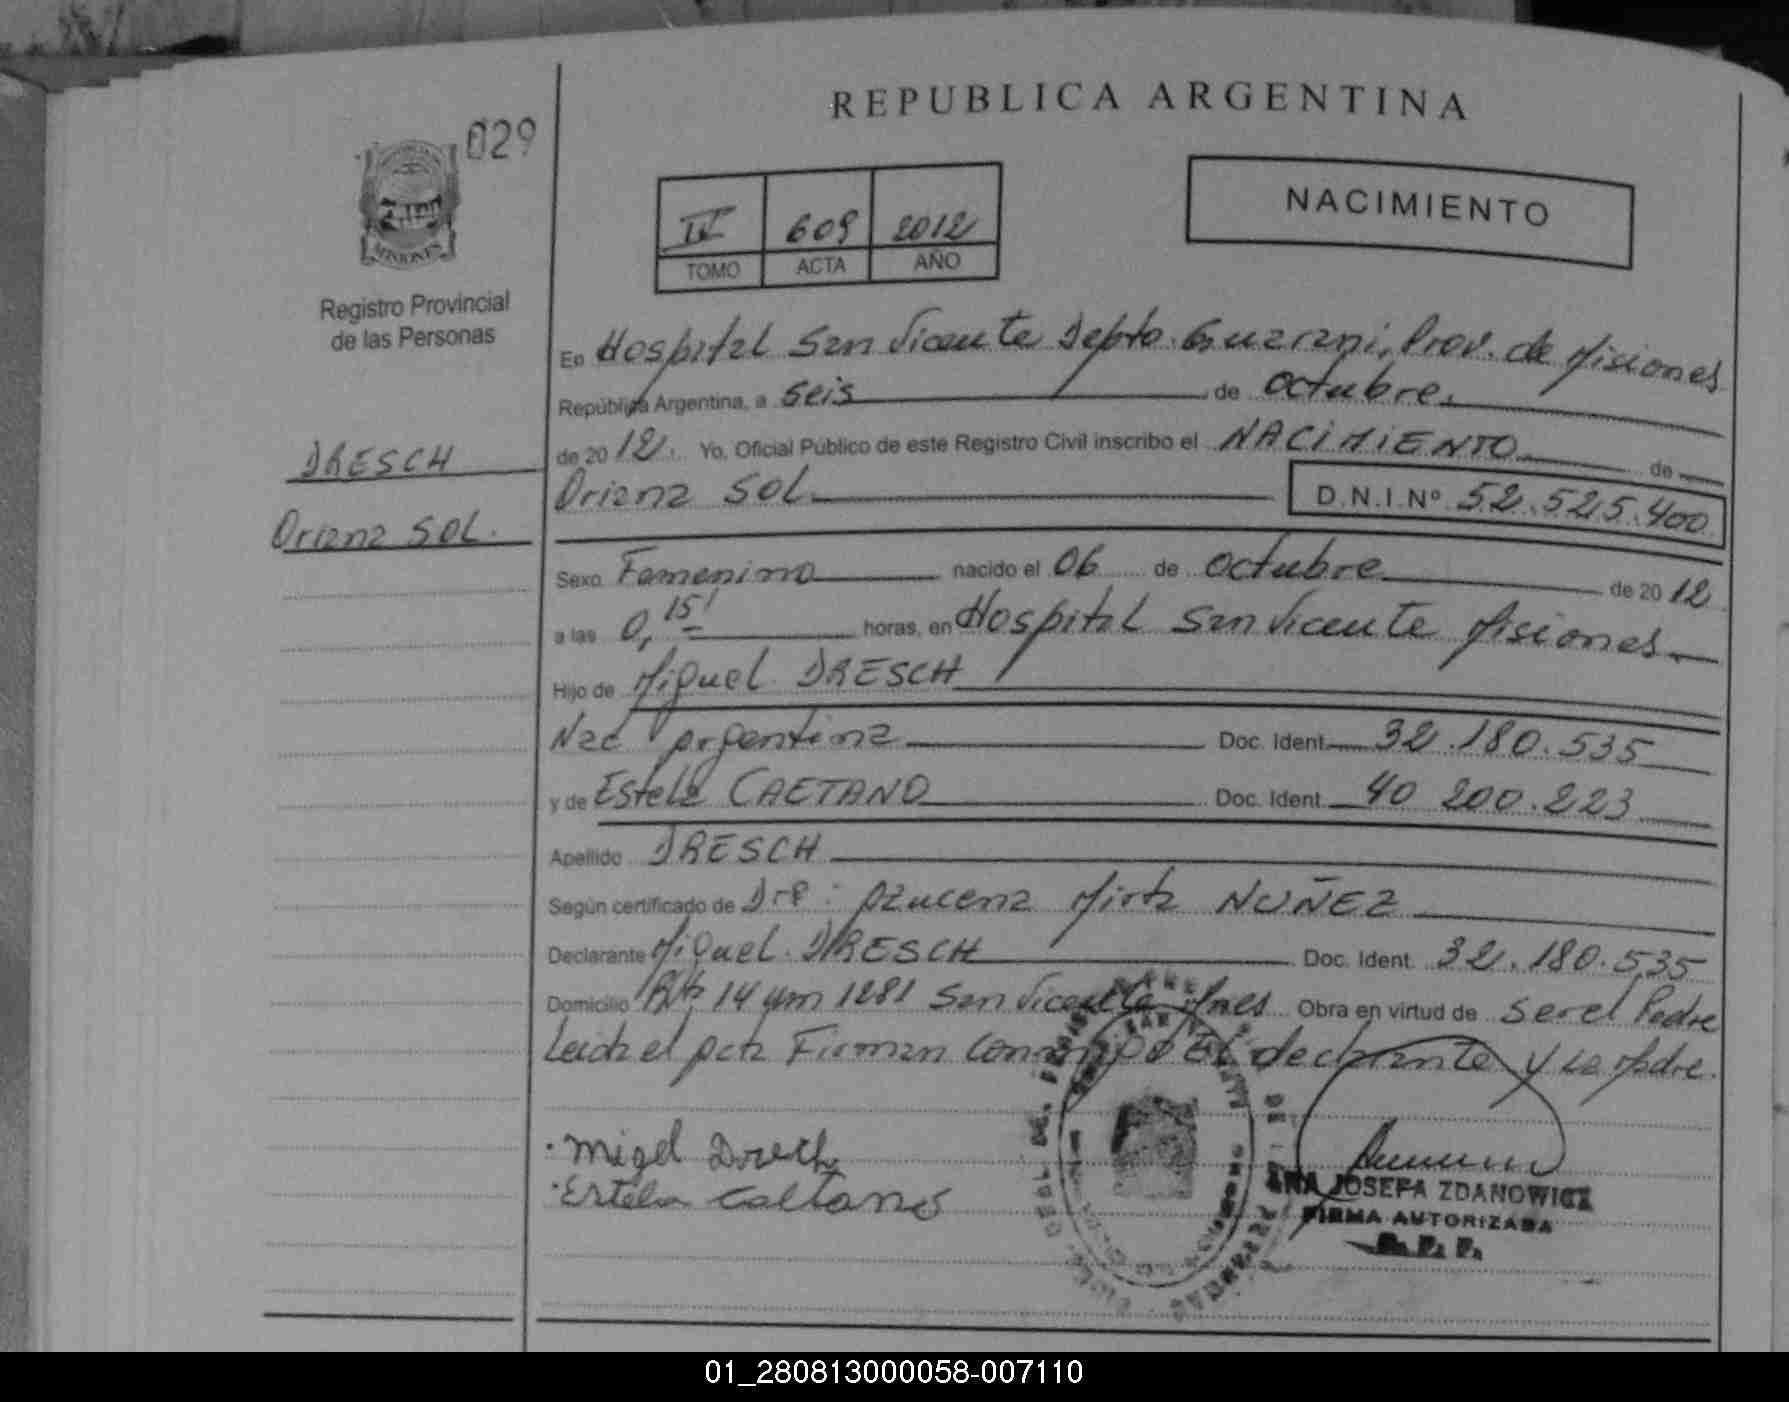 REPUBLICA ARGENTINA
029
NACIMIENTO
IV 609 2012
TOMO ACTA AÑO
MISIONES
Registro Provincial
de las Personas
DRESCH
Oriana SOL.
En Hospital San Vicente Depto. Guarani, Prov. de Misiones
República Argentina, a seis de octubre.
de 2012. Yo, Oficial Público de este Registro Civil inscribo el NACIMIENTO de
Oriana SOL D.N.I. Nº 52.525.400
Sexo Femenino nacido el 06 de octubre de 2012
a las 0,15' horas, en Hospital San Vicente Misiones
Hijo de Miguel DRESCH
Nac Argentina Doc. Ident. 32.180.535
y de Estela CAETANO Doc. Ident. 40 200.223
Apellido DRESCH
Según certificado de Dra: Azucena Mirta NUÑEZ
Declarante Miguel DRESCH Doc. Ident. 32.180.535
Domicilio Ruta 14 1281 San Vicente Mnes Obra en virtud de ser el Padre
Leida el acta Firman conmigo El declarante y la Madre.
Migel Drech
Estela Caetano
ANA JOSEFA ZDANOWICZ
FIRMA AUTORIZADA
R. P. P.
01_280813000058-007110